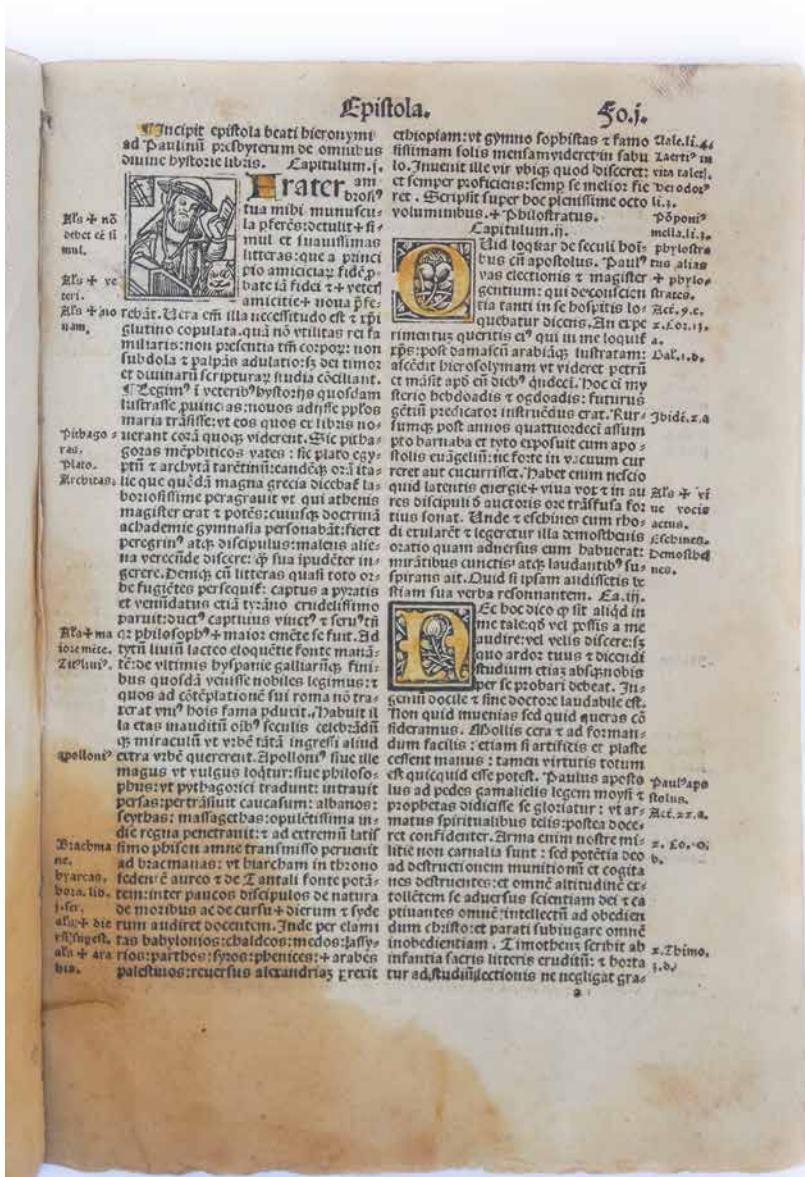 Epistola.
Fo.j.
¶Incipit epistola beati hieronymi
ad Paulinū presbyterum de omnibus
diuine hystorie libris. Capitulum.j.
Frater am
brosiꝰ
tua mihi munuscu⸗
la pferēs:detulit + si⸗
mul et suauissimas
litteras:que a princi
pio amiciciaꝝ fidē ꝓ⸗
bate iā fidei ⁊ + veteri
amicitie + noua pfe⸗
rebāt. Uera em̄ illa necessitudo est ⁊ xp̄i
glutino copulata. quā nō vtilitas rei fa
miliaris:non presentia tm̄ corpoꝝ: non
subdola ⁊ palpās adulatio:sꝫ dei timor
et diuinarū scripturaꝝ studia cōciliant.
¶Legimꝰ ī veteribꝰ hystorijs quosdam
lustrasse ꝓuincias:nouos adijsse pplos
maria trāsisse:vt eos quos ex libris no⸗
uerant corā quoqꝫ viderent. Sic pitha⸗
goras mēphiticos vates : sic plato egy⸗
ptū ⁊ archytā tarētinū:eandēqꝫ orā ita⸗
lie que quēdā magna grecia dicebat̄ la⸗
boriosissime peragrauit vt qui athenis
magister erat ⁊ potēs:cuiusqꝫ doctrinā
achademie gymnasia personabāt:fieret
peregrinꝰ atqꝫ discipulus:malens alie⸗
na verecūde discere: qꝫ sua īpudēter in⸗
gerere. Deniqꝫ cū litteras quasi toto or⸗
be fugiētes persequit̄: captus a pyratis
et venūdatus etiā tyrāno crudelissimo
paruit:ductꝰ captiuus vinctꝰ ⁊ seruꝰ tn̄
qꝛ philosophꝰ + maior emēte se fuit. Ad
tytū liuiū lacteo eloquētie fonte manā⸗
tē:de vltimis hyspanie galliarūqꝫ fini⸗
bus quosdā venisse nobiles legimus: ⁊
quos ad cōtēplationē sui roma nō tra⸗
xerat vniꝰ hois fama pduxit. Habuit il
la etas inauditū oībꝰ seculis celebrādū
qꝫ miraculū vt vrbē tātā ingressi aliud
extra vrbē quererent. Apolloniꝰ siue ille
magus vt vulgus loqtur:siue philoso⸗
phus:vt pythagorici tradunt: intrauit
persas:pertrāsiuit caucasum: albanos:
scythas: massagethas:opulētissima in⸗
die regna penetrauit: ⁊ ad extremū latis
simo phison amne transmisso peruenit
ad bracmanas: vt hiarcham in throno
sedentē aureo ⁊ de Tantali fonte potā⸗
tem:inter paucos discipulos de natura
de moribus ac de cursu + dierum ⁊ syde
rum audiret docentem. Inde per elami
tas babylonios:chaldeos:medos:assy⸗
rios:parthos:syros:phenices: + arabes
palestinos:reuersus alexandriaꝫ perexit
Als + nō
debet eē si
mul.
Als + ve
teri.
Als + no
uam.
Pithago
ras.
Plato.
Architas.
Als + ma
iore mēte.
Titꝰ liuiꝰ.
apolloniꝰ
Brachma
ne.
byarcas.
als + ara
bia.
ethiopiam:vt gymno sophistas ⁊ famo
sissimam solis mensam videret in sabu
lo. Inuenit ille vir vbiqꝫ quod disceret:
et semper proficiens:semp se melior fie
ret . Scripsit super hoc plenissime octo
voluminibus. + Philostratus.
Capitulum.ij.
Quid loqꝛar de seculi hoī⸗
bus cū apostolus. Paulꝰ
vas electionis ⁊ magister
gentium: qui de conscien
tia tanti in se hospitis lo⸗
quebatur dicens. An expe
rimentuꝫ queritis eiꝰ qui in me loquit̄
xp̄s:post damascū arabiāqꝫ lustratam:
ascēdit hierosolymam vt videret petrū
et māsit apd̄ eū diebꝰ q̄ndeci. Hoc ei my
sterio hebdoadis ⁊ ogdoadis: futurus
gētiū predicator instruēdus erat. Rur⸗
sumqꝫ post annos quattuordeci assum
pto barnaba et tyto exposuit cum apo⸗
stolis euāgeliū: ne forte in vacuum cur
reret aut cucurrisset. Habet enim nescio
quid latentis energie + viua vox ⁊ in au
res discipuli d̄ auctoris ore trāsfusa for
tius sonat. Unde ⁊ eschines cum rho⸗
di exularet ⁊ legeretur illa demosthenis
oratio quam aduersus eum habuerat:
mirātibus cunctis: atqꝫ laudantibꝰ su⸗
spirans ait. Quid si ipsam audissetis be
stiam sua verba resonnantem. Ca.iij.
NEc hoc dico ꝙ sit aliqd in
me tale:qd̄ vel possis a me
audire:vel velis discere:sꝫ
quo ardor tuus ⁊ dicendi
studium etiaꝫ absqꝫ nobis
per se probari debeat. In⸗
geniū docile ⁊ sine doctore laudabile est.
Non quid inuenias sed quid queras cō
sideramus. Mollis cera ⁊ ad forman⸗
dum facilis : etiam si artificis et plaste
cessent manus : tamen virtutis totum
est quicquid esse potest. Paulus aposto
lus ad pedes gamalielis legem moysi ⁊
prophetas didicisse se gloriatur : vt ar⸗
matus spiritualibus telis:postea doce⸗
ret confidenter. Arma enim nostre mi⸗
litie non carnalia sunt : sed potētia deo
ad destructionem munitionū et cogita
nes destruentes:et omnē altitudinē ex⸗
tollētem se aduersus scientiam dei ⁊ ca
ptiuantes omnē intellectū ad obedien
dum christo:et parati subiugare omnē
inobedientiam . Timotheus scribit ab
infantia sacris litteris eruditū: ⁊ horta
tur ad studiū lectionis ne negligat gra⸗
a
Uale.li.4.
Laertiꝰ in
vita tales.
Herodorꝰ
li.3.
Pōponiꝰ
mella.li.3.
phylostra
tus alias
+ phylo⸗
strates.
Act.9.c.
2.Cor.13.
a.
Gal.1.d.
Ibidē.2.a
Als + vi
ue vocis
actus.
Eschines.
Demosthe
nes.
Paulꝰ apo
stolus.
Act.22.a.
2. Co.10.
b.
2. Thimo.
3.d.